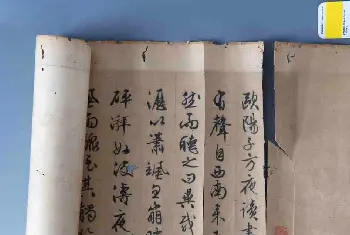 歐陽子方夜讀書
有聲自西南來
然而聽之曰異哉
瀝以蕭颯忽崩
砰湃如波濤夜
雨驟至其觸